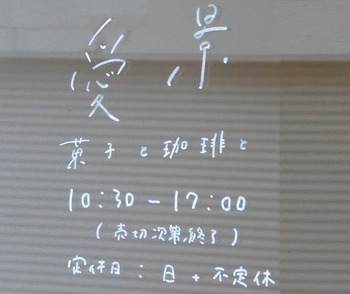 愛 景
菓子と珈琲と
10:30-17:00
(売切次第終了)
定休日:日+不定休